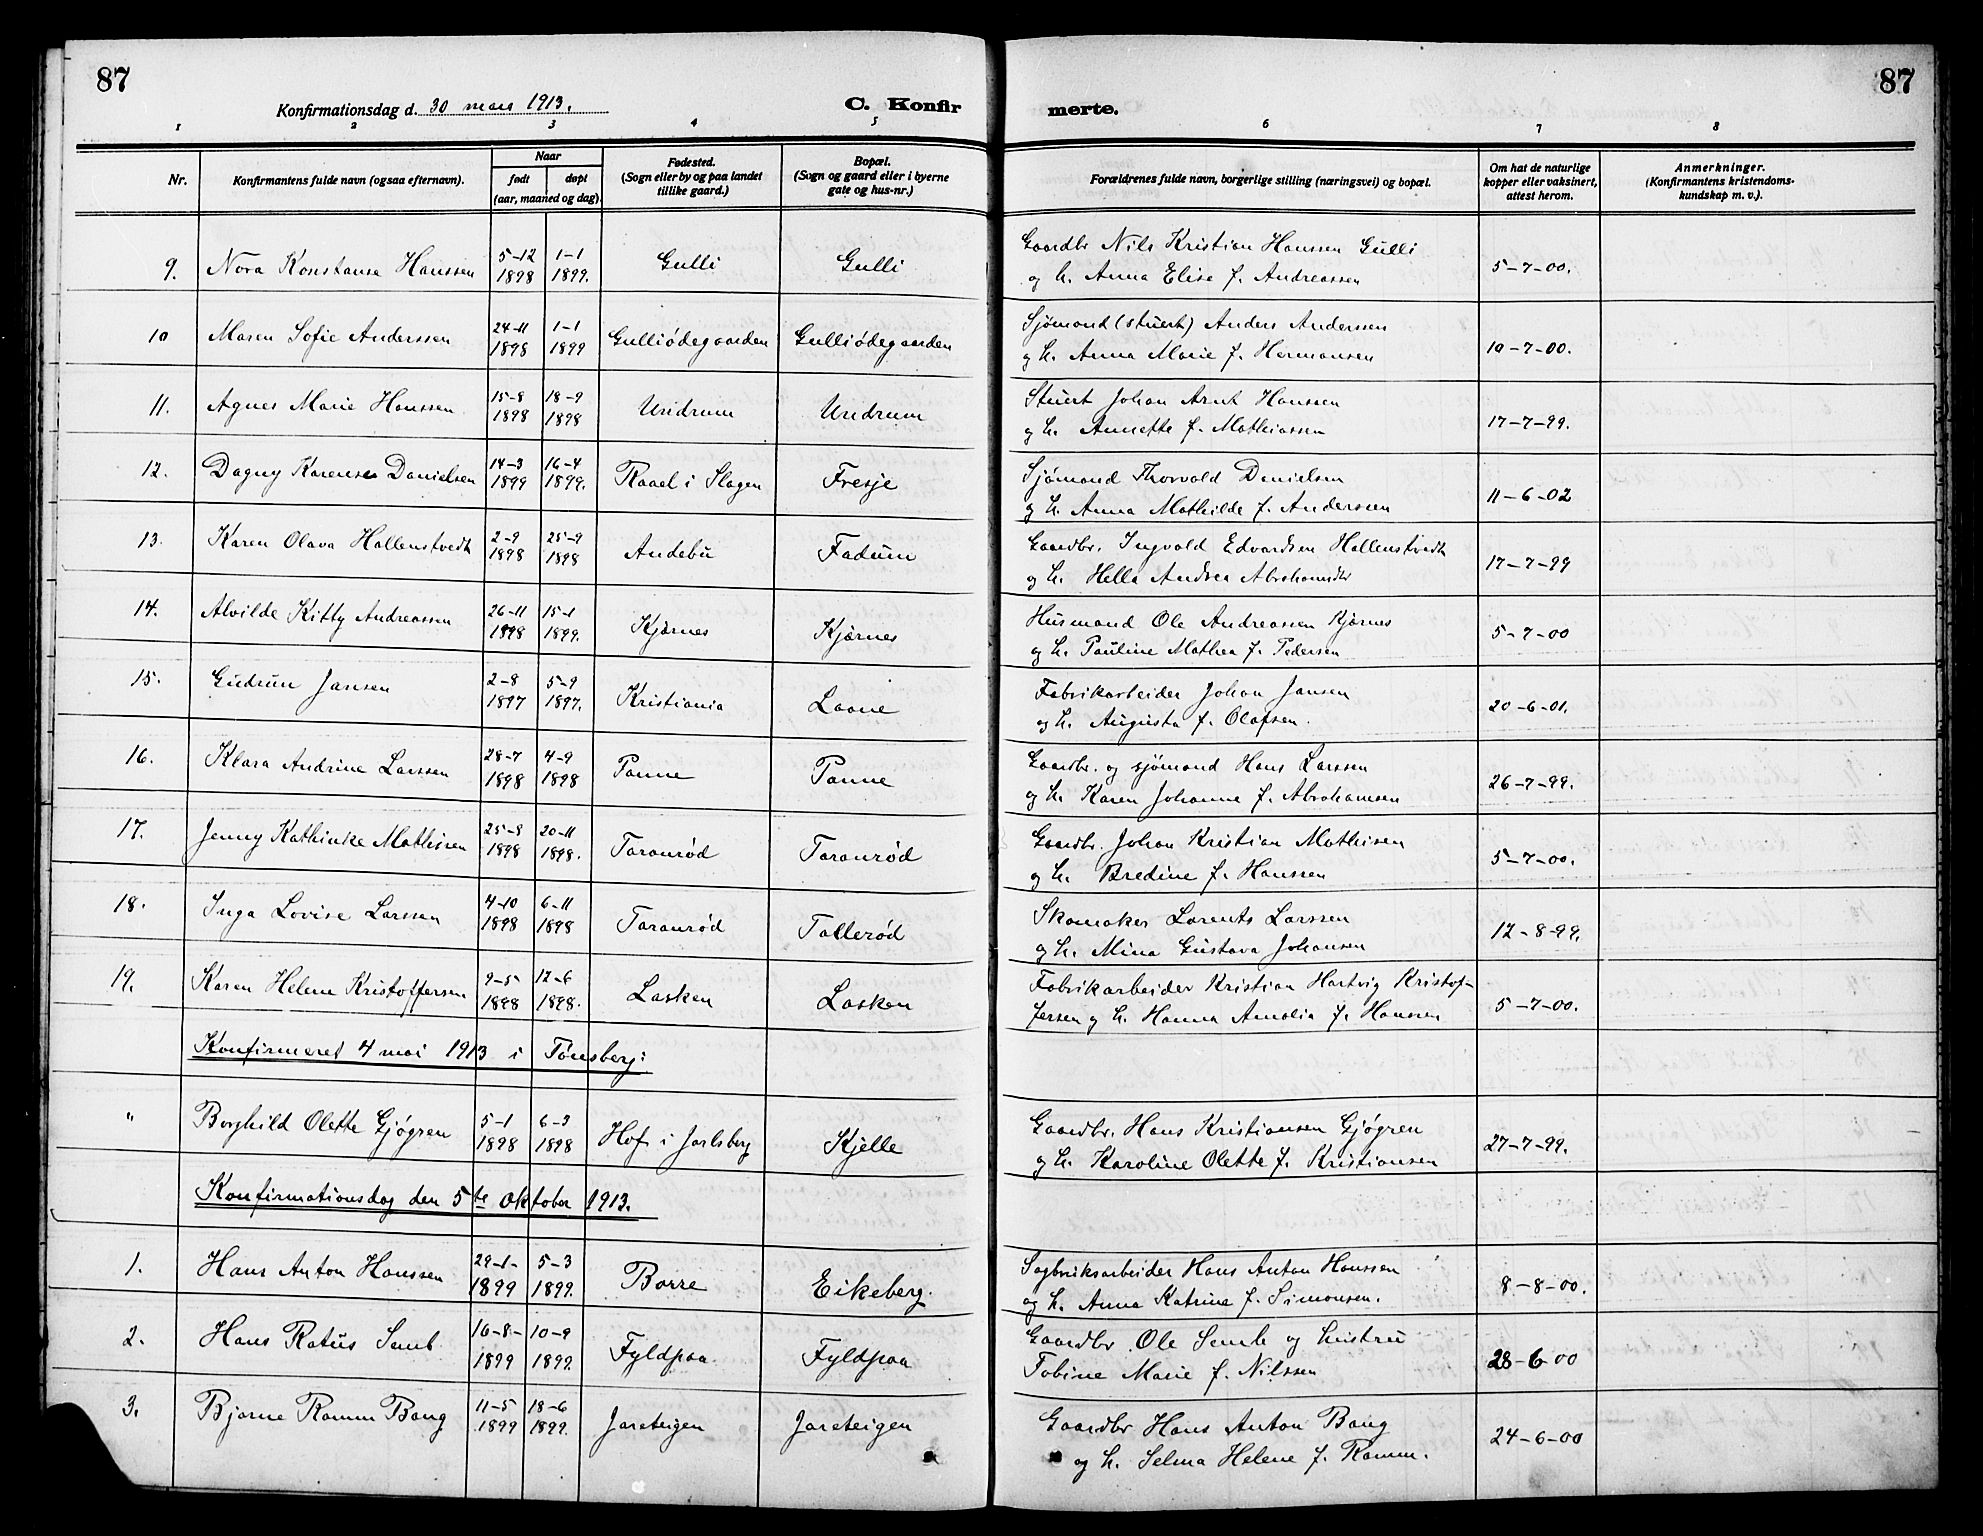 87
87
Konfirmationsdag d. 30 mars 1913.
C. Konfir
merte.
1 2 3 4 5 6 7 8
Nr.
Konfirmantens fulde navn (ogsaa efternavn).
Naar
født døpt
(aar, maaned og dag).
Fødested.
(Sogn eller by og paa landet
tillike gaard.)
Bopæl.
(Sogn og gaard eller i byerne
gate og hus-nr.)
Forældrenes fulde navn, borgerlige stilling (næringsvei) og bopæl.
Om hat de naturlige
kopper eller vaksinert,
attest herom.
Anmerkninger.
(Konfirmantens kristendoms-
kundskap m. v.).
9. Nora Konstanse Hanssen 5-12 1898 1-1 1899. Gulli Gulli
Gaardbr Nils Kristian Hanssen Gulli
og h. Anna Elise f. Andreassen 5-7-00.
10 Maren Sofie Anderssen 24-11 1898 1-1 1899 Gulliødegaarden Gulliødegaarden
Sjømand (stuert) Anders Anderssen
og h. Anna Marie f. Hermansen 10-7-00.
11. Agnes Marie Hanssen 15-8 1898 18-9 1898 Undrum Undrum
Stuert Johan Arnt Hanssen
og h. Annette f. Mathiassen 17-7-99.
12. Dagny Karense Danielsen 14-3 1899 16-4 1899. Raael i Slagen Fresje
Sjømand Thorvald Danielsen
og h. Anna Mathilde f. Anderssen 11-6-02
13. Karen Olava Hallenstvedt 2-9 1898 25-9 1898 Andebu Fadum
Gaardbr. Ingvald Edvardsen Hallenstvedt
og h. Hella Andrea Abrahamsdtr 17-7-99
14. Alvilde Kitty Andreassen 26-11 1898 15-1 1899. Kjørnes Kjørnes
Husmand Ole Andreassen Kjørnes
og h. Pauline Mathea f. Pedersen 5-7-00
15. Gudrun Jansen 2-8 1897 5-9 1897. Kristiania Laane
Fabrikarbeider Johan Jansen
og h. Augusta f. Olafsen. 20-6-01.
16. Klara Andrine Larssen 28-7 1898 4-9 1898 Panne Panne
Gaardbr. og sjømand Hans Larssen
og h. Karen Johanne f. Abrahamsen 26-7-99.
17. Jenny Kathinke Mathisen 25-8 1898 20-11 1898. Taranrød Taranrød
Gaardbr. Johan Kristian Mathisen
og h. Bredine f. Hanssen 5-7-00.
18. Inga Lovise Larssen 4-10 1898 6-11 1898 Taranrød Tallerød
Skomaker Lorents Larssen
og h. Mina Gustava Johansen 12-8-99.
19. Karen Helene Kristoffersen 9-5 1898 12-6 1898. Lasken Lasken
Fabrikarbeider Kristian Hartvig Kristof-
fersen og h. Hanna Amalia f. Hanssen 5-7-00.
Konfirmeret 4 mai 1913 i Tønsberg:
" Borghild Olette Gjøgren 5-1 1898 6-3 1898 Hof i Jarlsberg Kjelle
Gaardbr. Hans Kristiansen Gjøgren
og h. Karoline Olette f. Kristiansen 27-7-99.
Konfirmationsdag den 5te oktober 1913.
1. Hans Anton Hanssen 29-1- 1899 5-3 1899. Borre Eikeberg.
Sagbruksarbeider Hans Anton Hanssen
og h. Anna Katrine f. Simonsen. 8-8-00.
2. Hans Ratus Semb 16-8- 1899 10-9 1899. Fyldpaa Fyldpaa
Gaardbr. Ole Semb og hustru
Tobine Marie f. Nilssen 28-6-00
3. Bjarne Ramm Bang 11-5 1899 18-6 1899. Jareteigen Jareteigen
Gaardbr Hans Anton Bang
og h. Selma Helene f. Ramm. 24-6-00